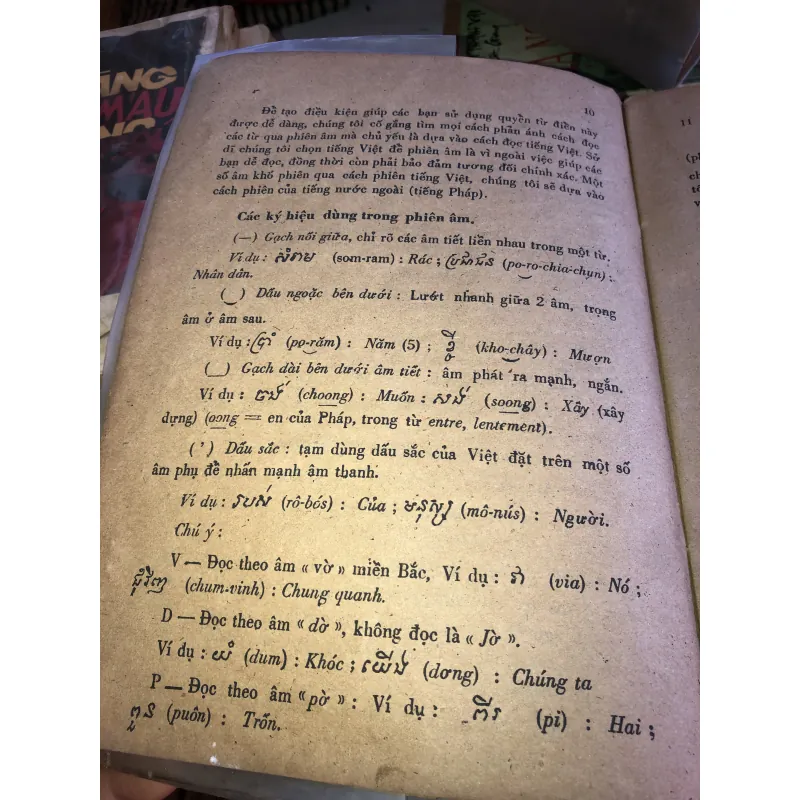 ĂNG
MÁU
10
Để tạo điều kiện giúp các bạn sử dụng quyển từ điển này
được dễ dàng, chúng tôi cố gắng tìm mọi cách phản ánh cách đọc
các từ qua phiên âm mà chủ yếu là dựa vào cách đọc tiếng Việt. Sở
dĩ chúng tôi chọn tiếng Việt để phiên âm là vì ngoài việc giúp các
bạn dễ đọc, đồng thời còn phải bảo đảm tương đối chính xác. Một
số âm khó phiên qua cách phiên tiếng Việt, chúng tôi sẽ dựa vào
cách phiên của tiếng nước ngoài (tiếng Pháp).
Các ký hiệu dùng trong phiên âm.
(—) Gạch nối giữa, chỉ rõ các âm tiết liền nhau trong một từ.
Ví dụ : សំរាម (som-ram) : Rác ; ប្រជាជន (po-ro-chia-chụn) :
Nhân dân.
(‿) Dấu ngoặc bên dưới : Lướt nhanh giữa 2 âm, trọng
âm ở âm sau.
Ví dụ : ប្រាំ (po-răm) : Năm (5) ; ខ្ចី (kho-chây) : Mượn
(_) Gạch dài bên dưới âm tiết : âm phát ra mạnh, ngắn.
Ví dụ : ចង់ (choong) : Muốn : សង់ (soong) : Xây (xây
dựng) (oong = en của Pháp, trong từ entre, lentement).
(ʼ) Dấu sắc : tạm dùng dấu sắc của Việt đặt trên một số
âm phụ để nhấn mạnh âm thanh.
Ví dụ : របស់ (rô-bós) : Của ; មនុស្ស (mô-nús) : Người.
Chú ý :
V — Đọc theo âm « vờ » miền Bắc, Ví dụ : វា (via) : Nó ;
ជុំវិញ (chum-vinh) : Chung quanh.
D — Đọc theo âm “ dờ ”, không đọc là « Jờ ».
Ví dụ : យំ (dum) : Khóc ; យើង (dơng) : Chúng ta
P — Đọc theo âm “ pờ ” : Ví dụ : ពីរ (pi) : Hai ;
ពួន (puôn) : Trốn.
11